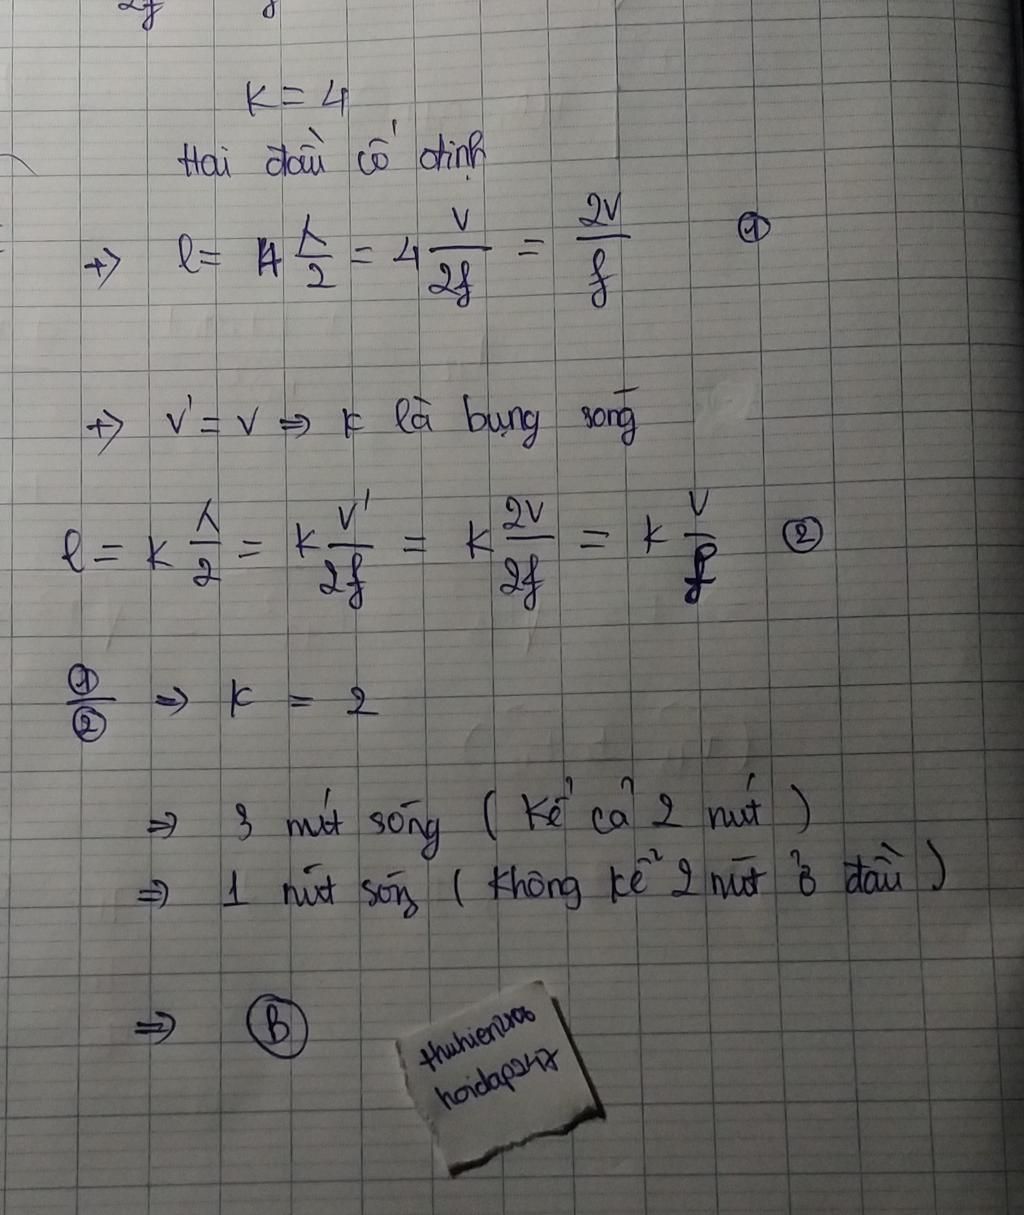 2f f
K = 4
Hai đầu cố định
+> l = 4 λ/2 = 4 v/2f = 2v/f ①
+> v' = v => k là bụng sóng
l = k λ/2 = k v'/2f = k 2v/2f = k v/f ②
①/② => k = 2
=> 3 nút sóng ( kể cả 2 nút )
=> 1 nút sóng ( không kể 2 nút ở đầu )
=> B
thuhien2106
hoidap247